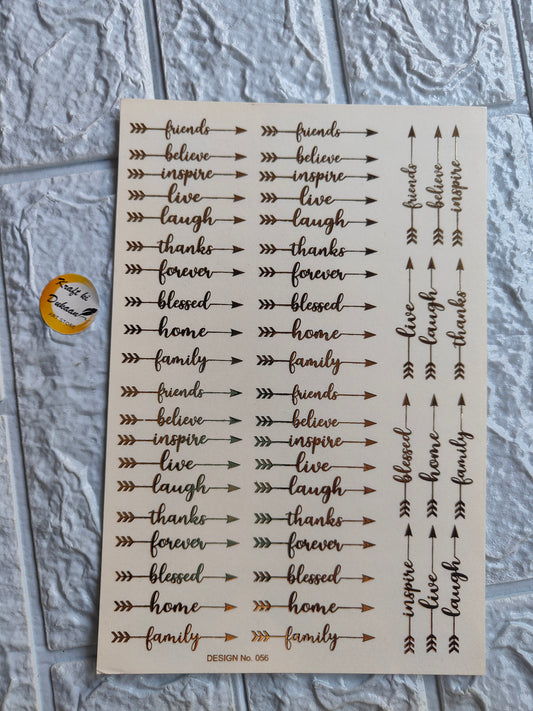 Kraft ki
Dukaan
ART STORE
friends friends
believe believe
inspire inspire
live live
laugh laugh
thanks thanks
forever forever
blessed blessed
home home
family family
friends friends
believe believe
inspire inspire
live live
laugh laugh
thanks thanks
forever forever
blessed blessed
home home
family family
friends
believe
inspire
live
laugh
thanks
blessed
home
family
inspire
live
laugh
DESIGN No. 056